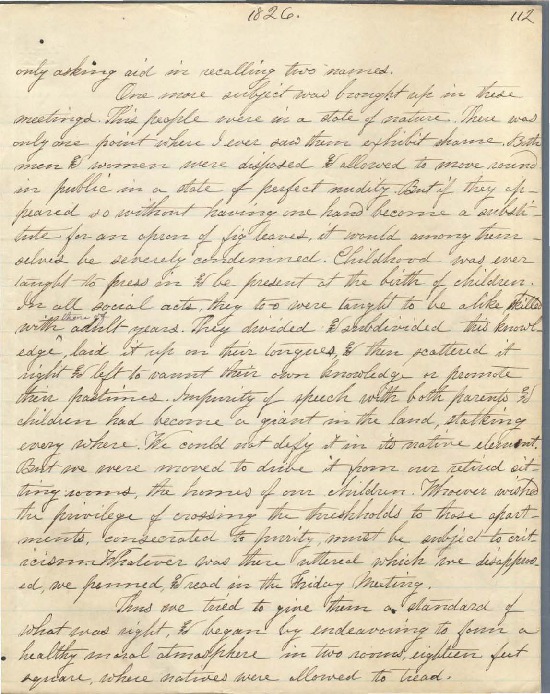 1826.
112
only asking aid in recalling two names.
One more subject was brought up in these
meetings. This people were in a state of nature. There was
only one point where I ever saw them exhibit shame. Both
men & women were disposed & allowed to move round
in public in a state of perfect nudity. But if they ap-
peared so without having one hand become a substi-
tute for an apron of fig leaves, it would among them-
selves be severely condemned. Childhood was ever
taught to press in & be present at the birth of children.
In all social acts, they too were taught to be alike skilled
with those of adult years. They divided & subdivided this knowl-
edge, laid it up on their tongues, & then scattered it
right & left to vaunt their own knowledge or promote
their pastimes. Impurity of speech with both parents &
children had become a giant in the land, stalking
every where. We could not defy it in its native element.
But we were moved to drive it from our retired sit-
ting rooms, the homes of our children. Whoever wished
the privilege of crossing the thresholds to those apart-
ments, consecrated to purity, must be subject to crit
icism. Whatever was there uttered which we disapprov-
ed, we penned, & read in the Friday Meeting.
Thus we tried to give them a standard of
what was right, & began by endeavoring to form a
healthy moral atmosphere in two rooms, eighteen feet
square, where natives were allowed to tread.